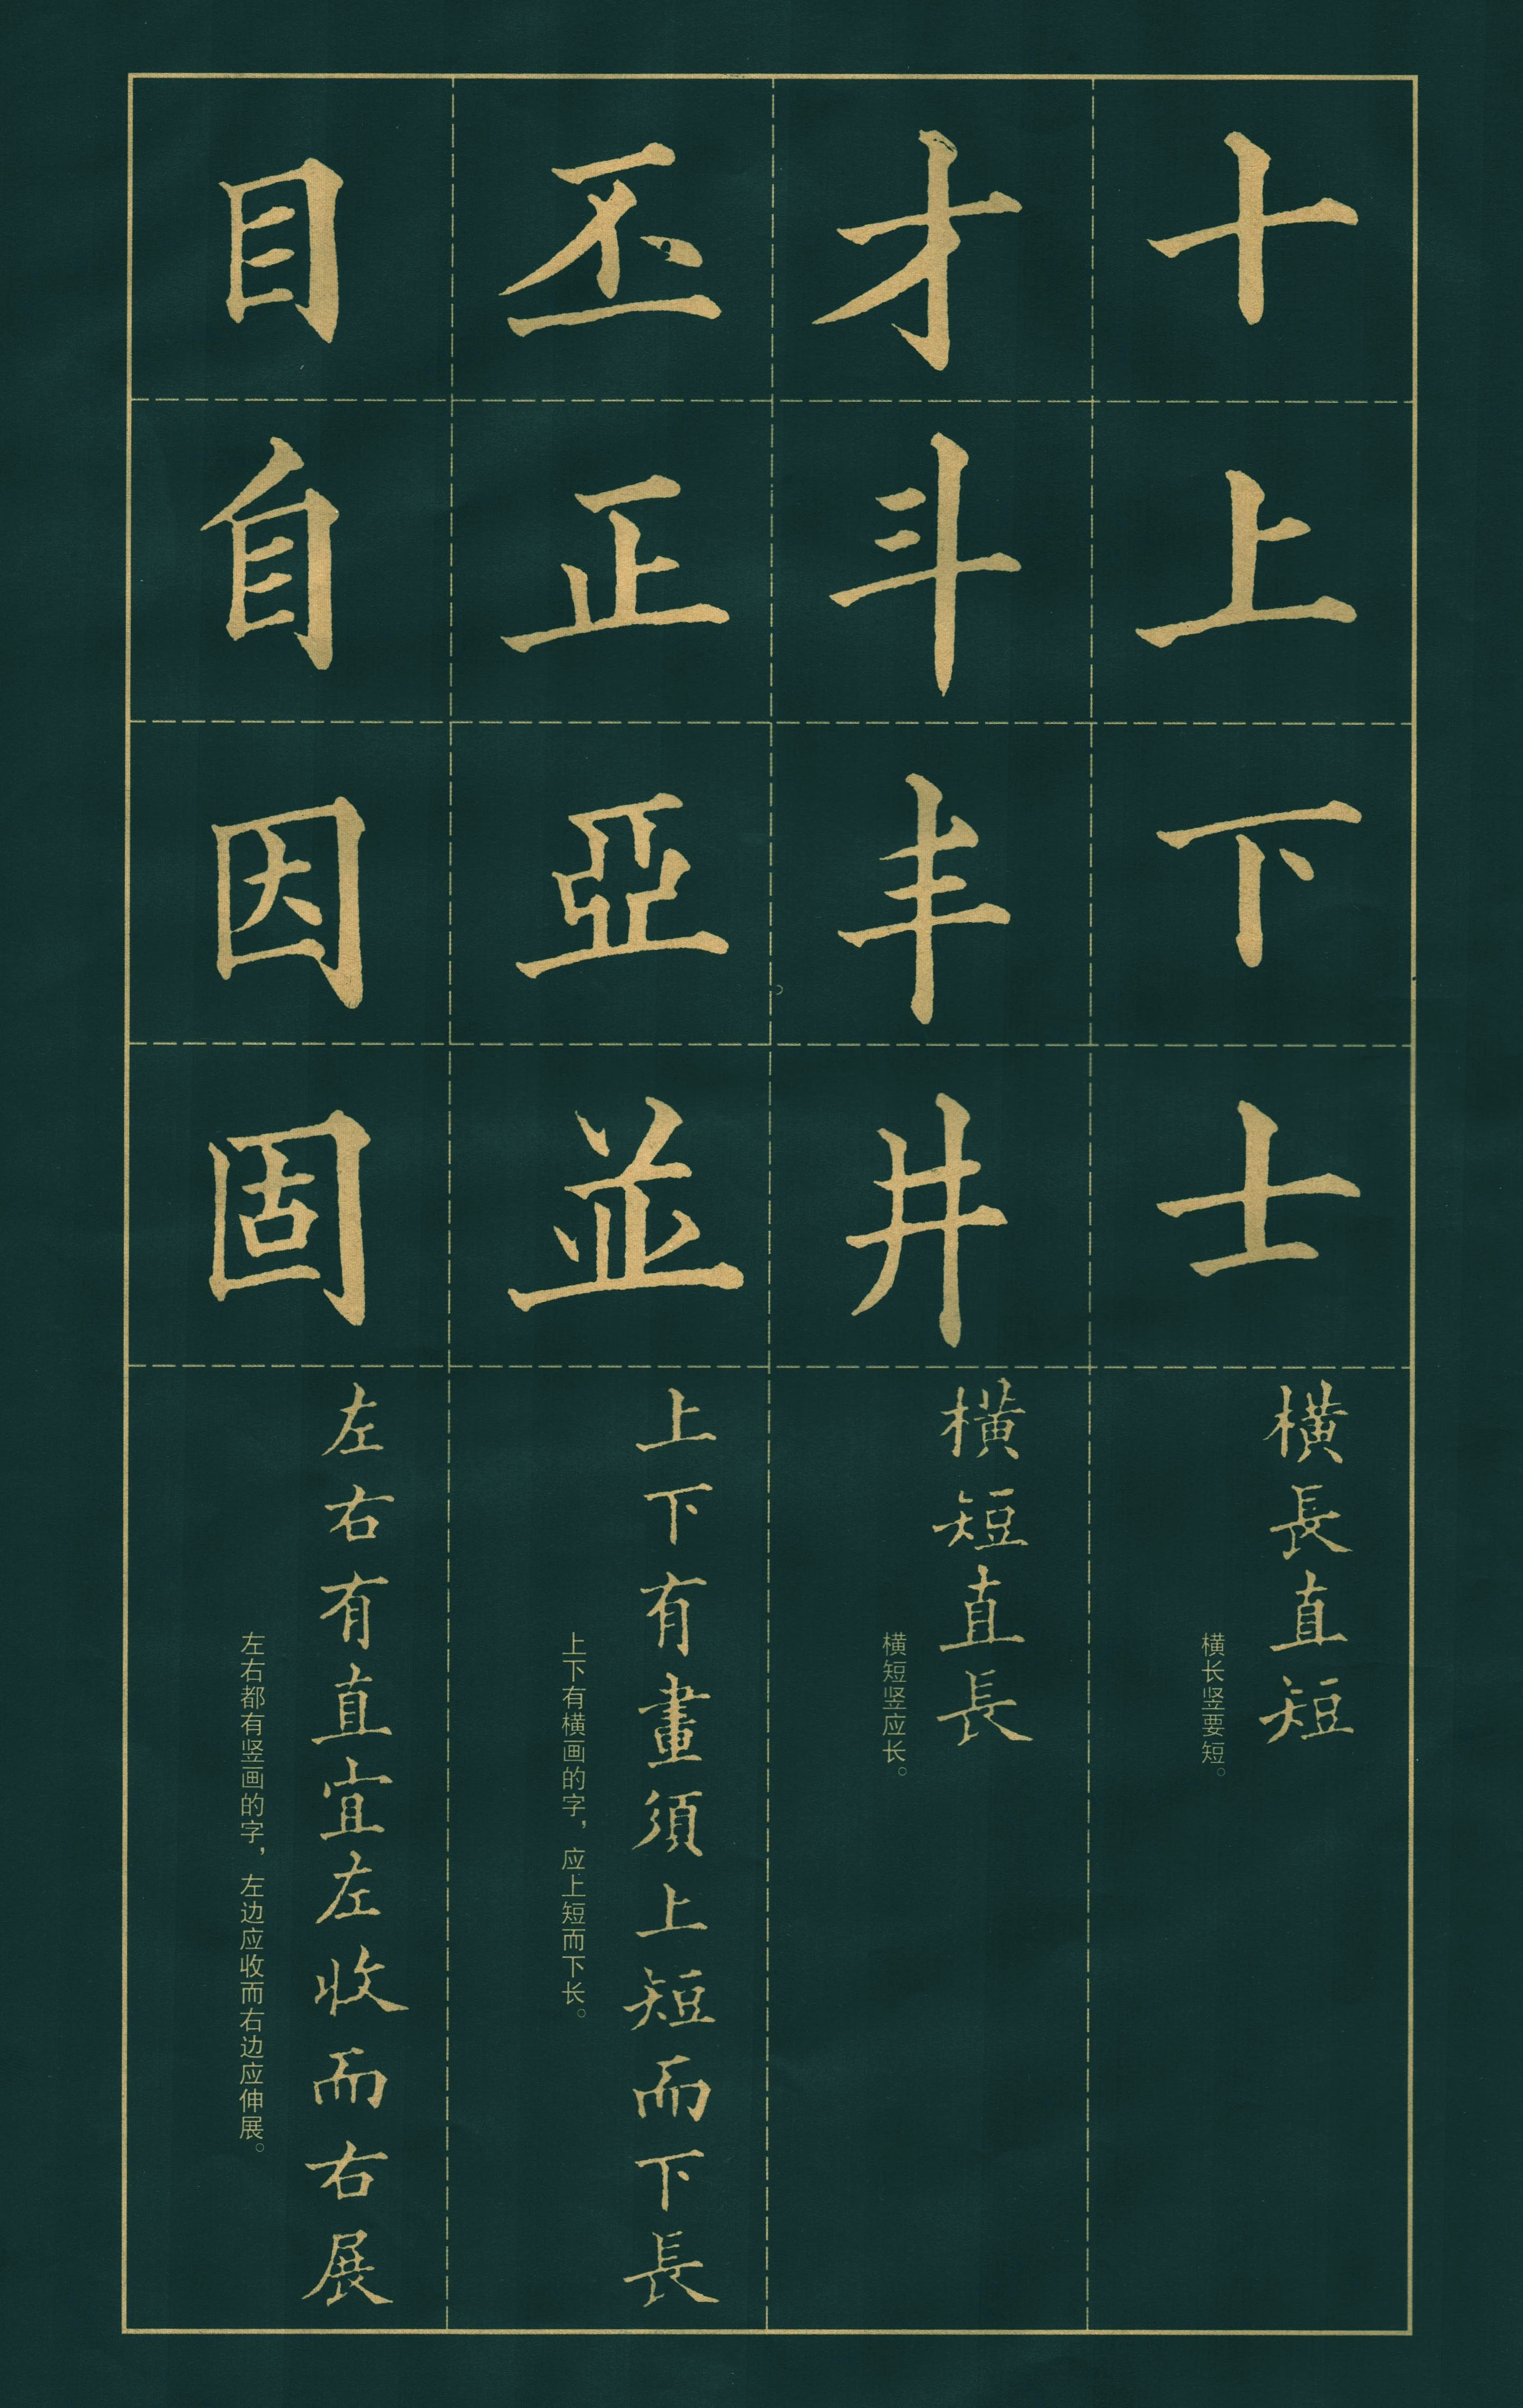 十上下士
橫長直短
横长竖要短。
才斗丰井
橫短直長
横短竖应长。
丕正亞並
上下有畫須上短而下長
上下有横画的字，应上短而下长。
目自因固
左右有直宜左收而右展
左右都有竖画的字，左边应收而右边应伸展。